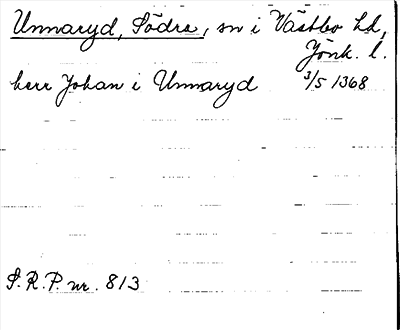 Unnaryd, Södra, sn i Västbo hd,
Jönk. l.
herr Johan i Unnaryd 3/5 1368
S.R.P. nr. 813